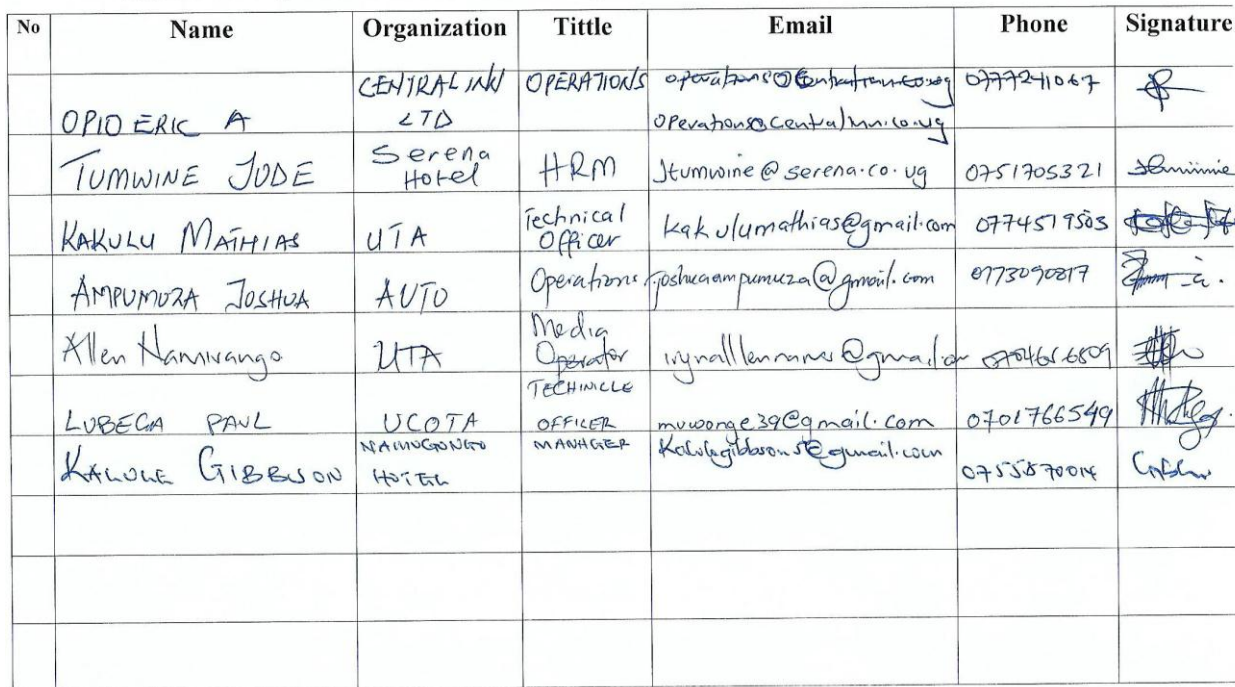 No Name Organization Tittle Email Phone Signature
OPIO ERIC A CENTRAL INN LTD OPERATIONS operations@centralinn.co.ug 0777241067
TUMWINE JUDE Serena Hotel HRM Jtumwine@serena.co.ug 0751705321
KAKULU MATHIAS UTA Technical Officer kakulumathias@gmail.com 0774519503
AMPUMUZA JOSHUA AUTO Operations joshuaampumuza@gmail.com 0773090817
Allen UTA Media Operator
LUBEGA PAUL UCOTA TECHINICLE OFFICER muwonge39@gmail.com 0701766549
KALULE GIBBSON NAMUGONGO HOTEL MANAGER